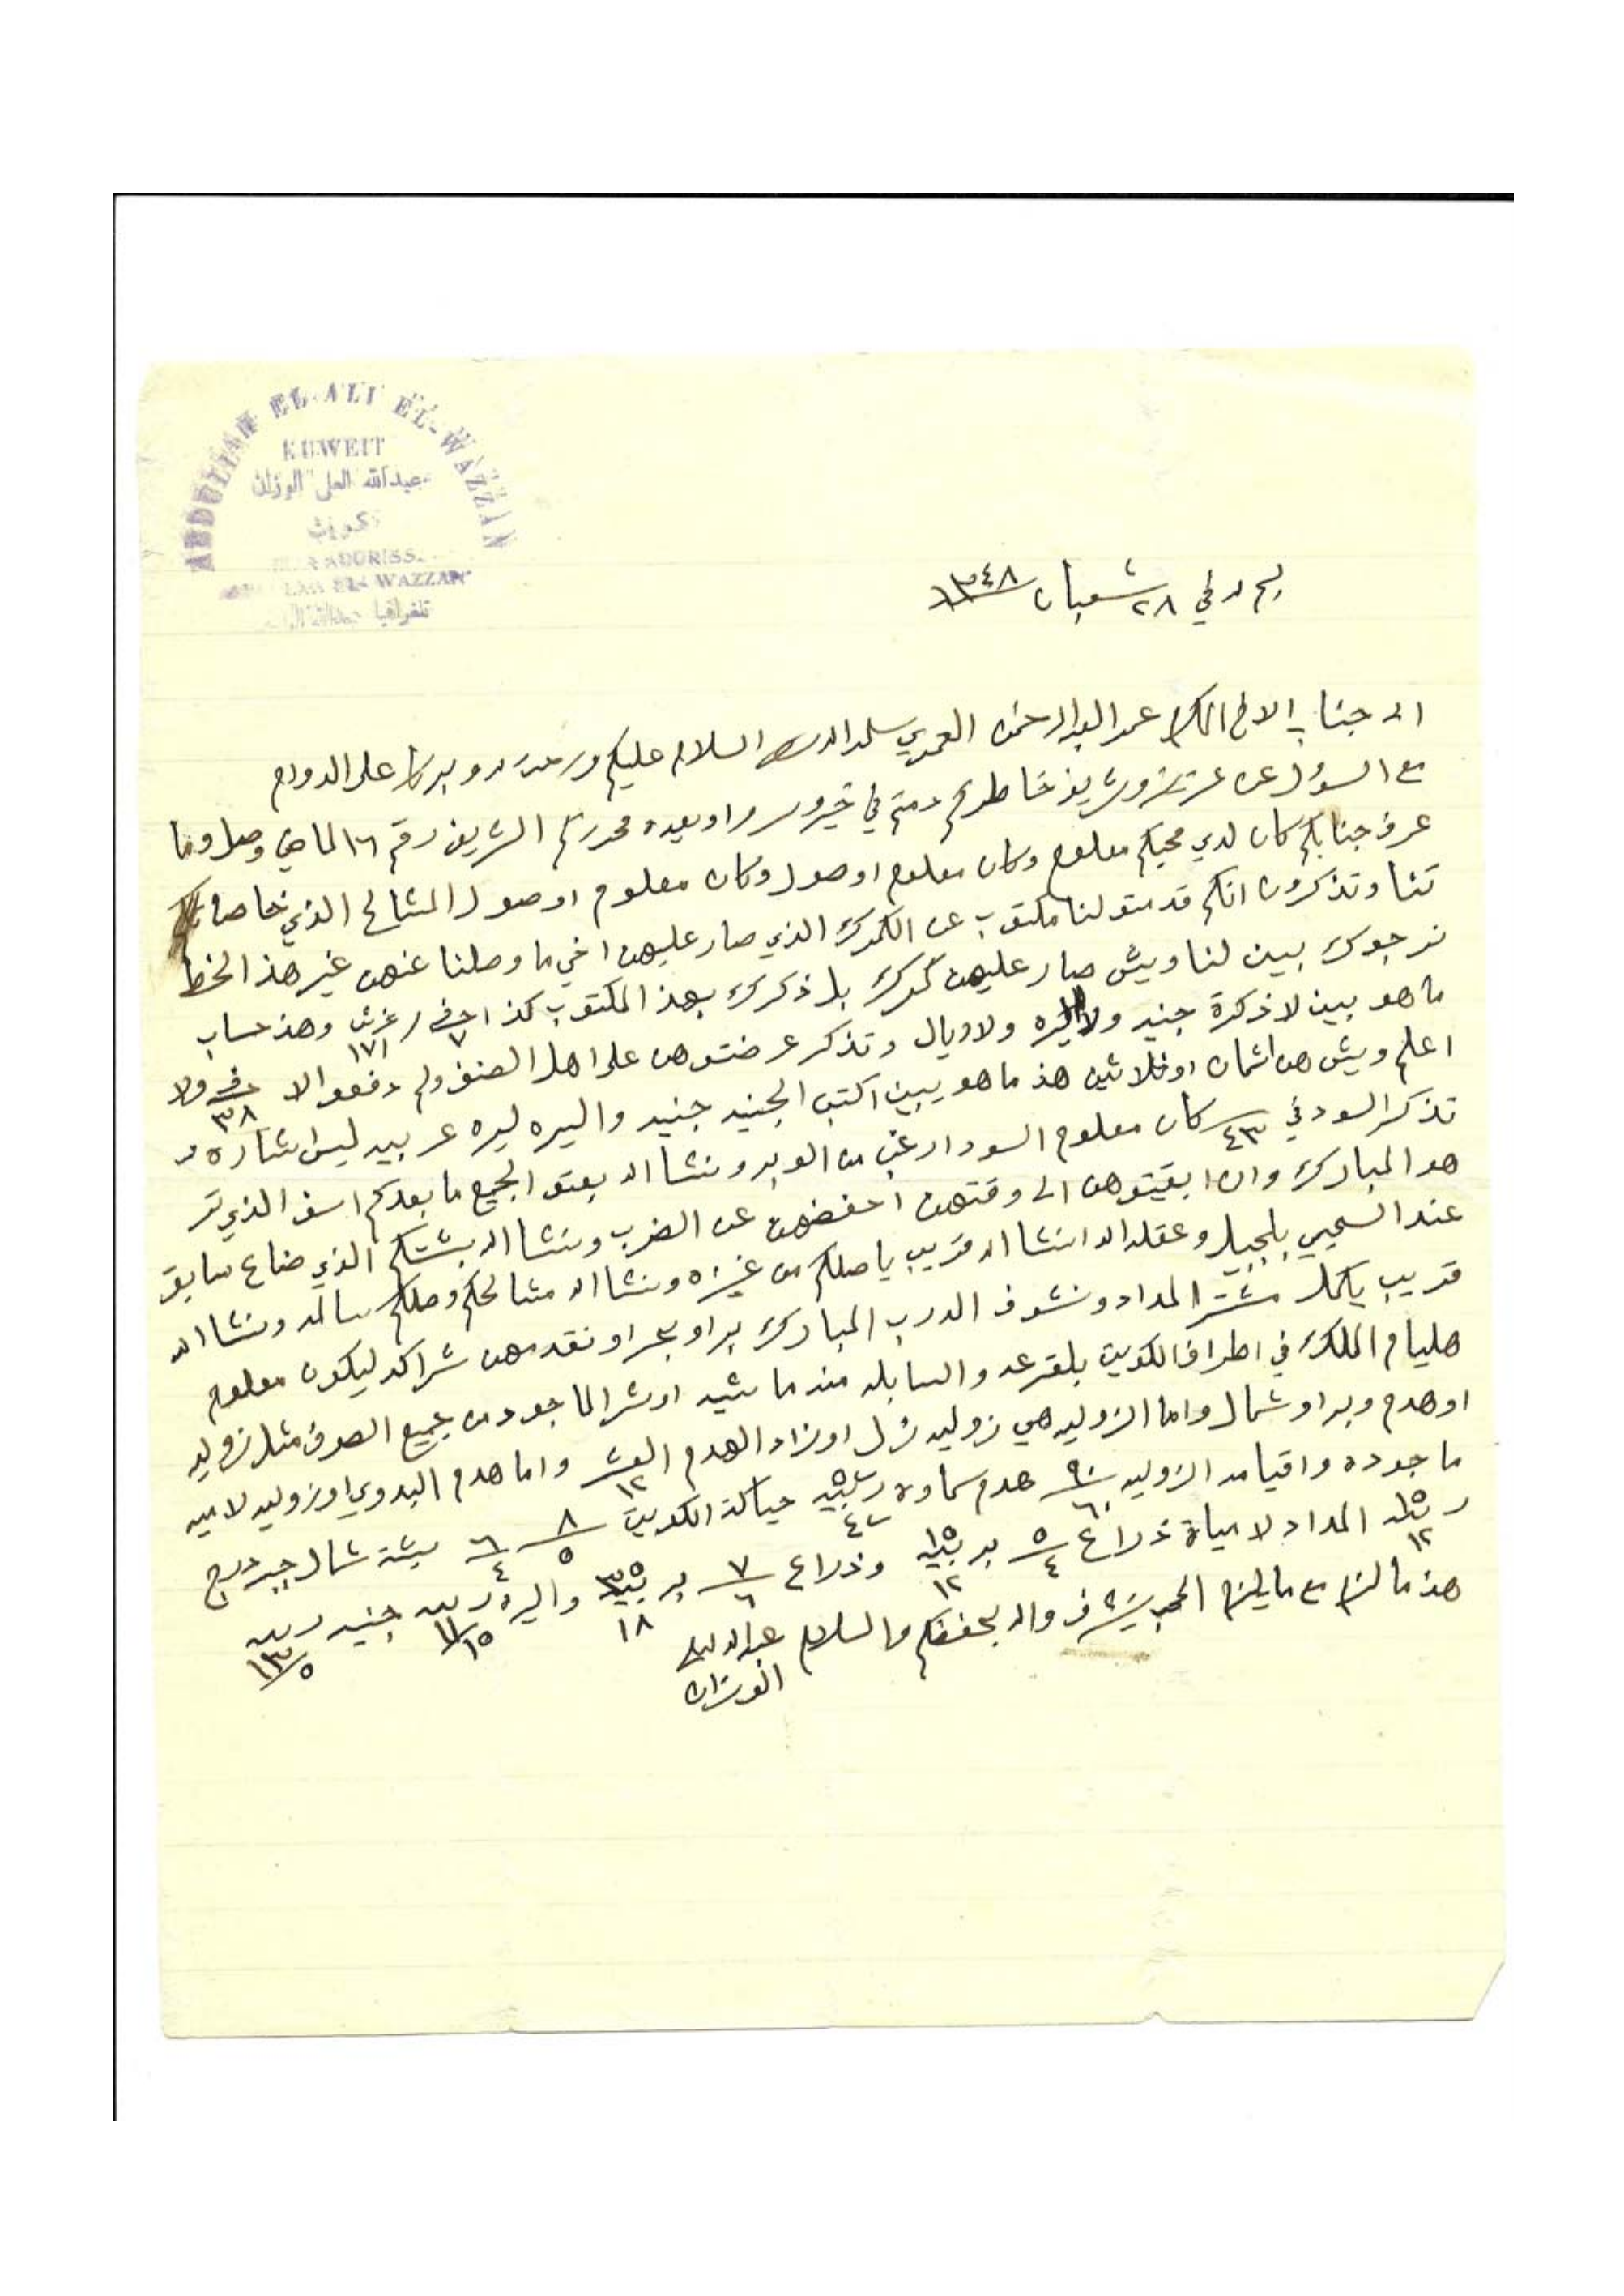 ABDULLAH EL-ALI EL-WAZZAN
KUWEIT
عبدالله العلي الوزان
كويت
ADDRISS.
WAZZAN
تلغرافيا
في ٢٨ شعبان ١٣٤٨
الى جناب الاخ المكرم عمر العبدالرحمن العمري سلمه الله السلام عليكم ورحمة الله وبركاته على الدوام
مع السؤل عن عزيز وشريف خاطركم دمتم في خير وسرور وبعده محرركم الشريف رقم ١٦ الماضي وصل وما
عرف جنابكم كان لدي محبكم معلوم وكان معلوم اوصول وكان معلوم اوصول المشالح الذي خاصاتكم
وتذكرون انكم قدمتو لنا مكتوب عن الكمرك الذي صار عليهن اخي ما وصلنا عنهن غير هذ الخط
نرجوك بين لنا ويش صار عليهن كمرك بل ذكرك بهذ المكتوب كذا ٧ غرش ١٧١ وهذ حساب
ما هو بين لا ذكرة جنيه ولا ليره ولا ريال وتذكر عرضتوهن على اهل الصنف ولم دفعوا الا ٣٨ ولا
اعلم ويش هن اثمان اوثلاثين هذ ما هو بين اكتب الجنيه جنيه واليره ليره عربيه ليس شاره
تذكر السود في ٤٣ كان معلوم السود ارغب من الوبر ونشا الله بعتو الجميع ما بعدكم اسف الذي
هو المبارك وان ابقيتوهن الى وقتهن احفضهن عن الضرب ونشا الله بشتكم الذي ضاع سابق
عند السحيمي بلجبيل وعقله الله انشا الله قريب ياصلكم من غيزه ونشا الله مشالحكم وصلكم سالمه ونشا الله
قريب يكمل مشتر المداد ونشوف الدرب المبارك برا وبحرا ونقدمهن شراكه ليكون معلوم
هليام الملك في اطراف الكويت بلقرعه والسابله منه ماشيه اوشر الماجود من جميع الصوف مثل زوليه
اوهدم وبر اوشمال واما الزوليه هي زوليه زل اوزاد الهدم العشر ١٢ واما هدم البدوي اوزوليه لاميه
ماجوده واقيامه الزوليه ٩٠ ٦٠ هدم سماوه ربيه ٤٥ حياكة الكويت ٨ ٥ ٦ ٤ بشته شمال
ربيه ١٥ ١٢ المداد لامياة ذراع ٥ ٤ بربيه ١٥ ١٢ وذراع ٧ ٦ بربيه ٣٥ ١٨ واليره ربيه ١١ ١٥ جنيه ربيه ١٣ ٥
هذ ما لزم مع ما يلزم المحب يتشرف والله يحفضكم والسلام عبدالله العلي
الوزان